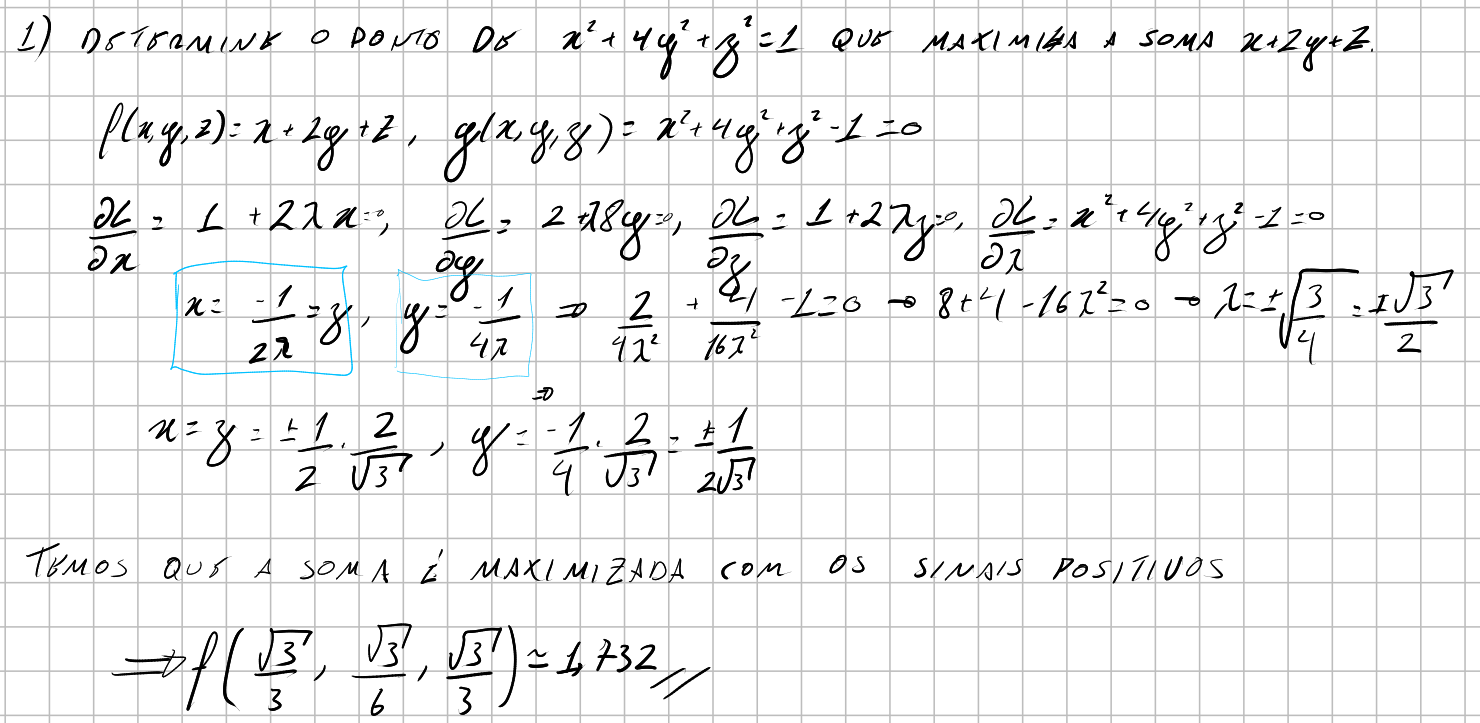 1) DETERMINE O PONTO DE x² + 4y² + z² = 1 QUE MAXIMIZA A SOMA x+2y+z.
f(x,y,z) = x + 2y + z, g(x,y,z) = x² + 4y² + z² - 1 = 0
∂L/∂x = 1 + 2λx = 0, ∂L/∂y = 2 + λ8y = 0, ∂L/∂z = 1 + 2λz = 0, ∂L/∂λ = x² + 4y² + z² - 1 = 0
x = -1/2λ = z, y = -1/4λ ⇒ 2/4λ² + 4/16λ² - 1 = 0 → 8 + 4 - 16λ² = 0 → λ = ±√(3/4) = ±√3/2
⇒
x = z = ±1/2 · 2/√3, y = -1/4 · 2/√3 = ±1/2√3
TEMOS QUE A SOMA É MAXIMIZADA COM OS SINAIS POSITIVOS
⇒ f(√3/3, √3/6, √3/3) ≃ 1,732 //